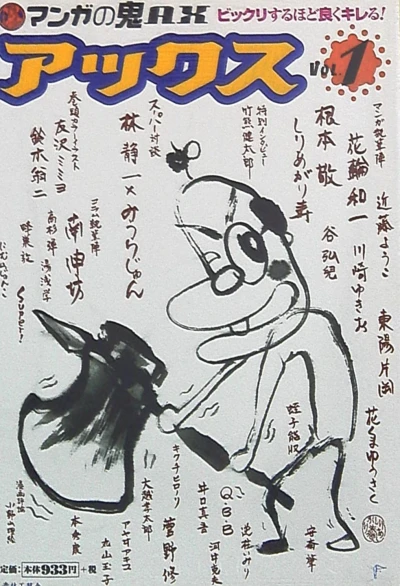 マンガの鬼AX
ビックリするほど良くキレる!
アックス
Vol.1
マンガ執筆陣
近藤ようこ
東陽片岡
花くまゆうさく
花輪和一
川崎ゆきお
根本敬
谷弘兒
しりあがり寿
特別インタビュー
竹熊健太郎
スーパー対談
林静一×みうらじゅん
巻頭カラーイラスト
友沢ミミヨ
鈴木翁二
コラム執筆陣
南伸坊
高杉弾
湯浅学
蛭子能収
Q.B.B
井口真吾
キクチヒロノリ
菅野修
大越孝太郎
アヤ井アキコ
丸山玉子
本秀康
逆柱いみり
河井克夫
安斎肇
Super!
漫画評論
小野山理絵
定価:本体933円+税